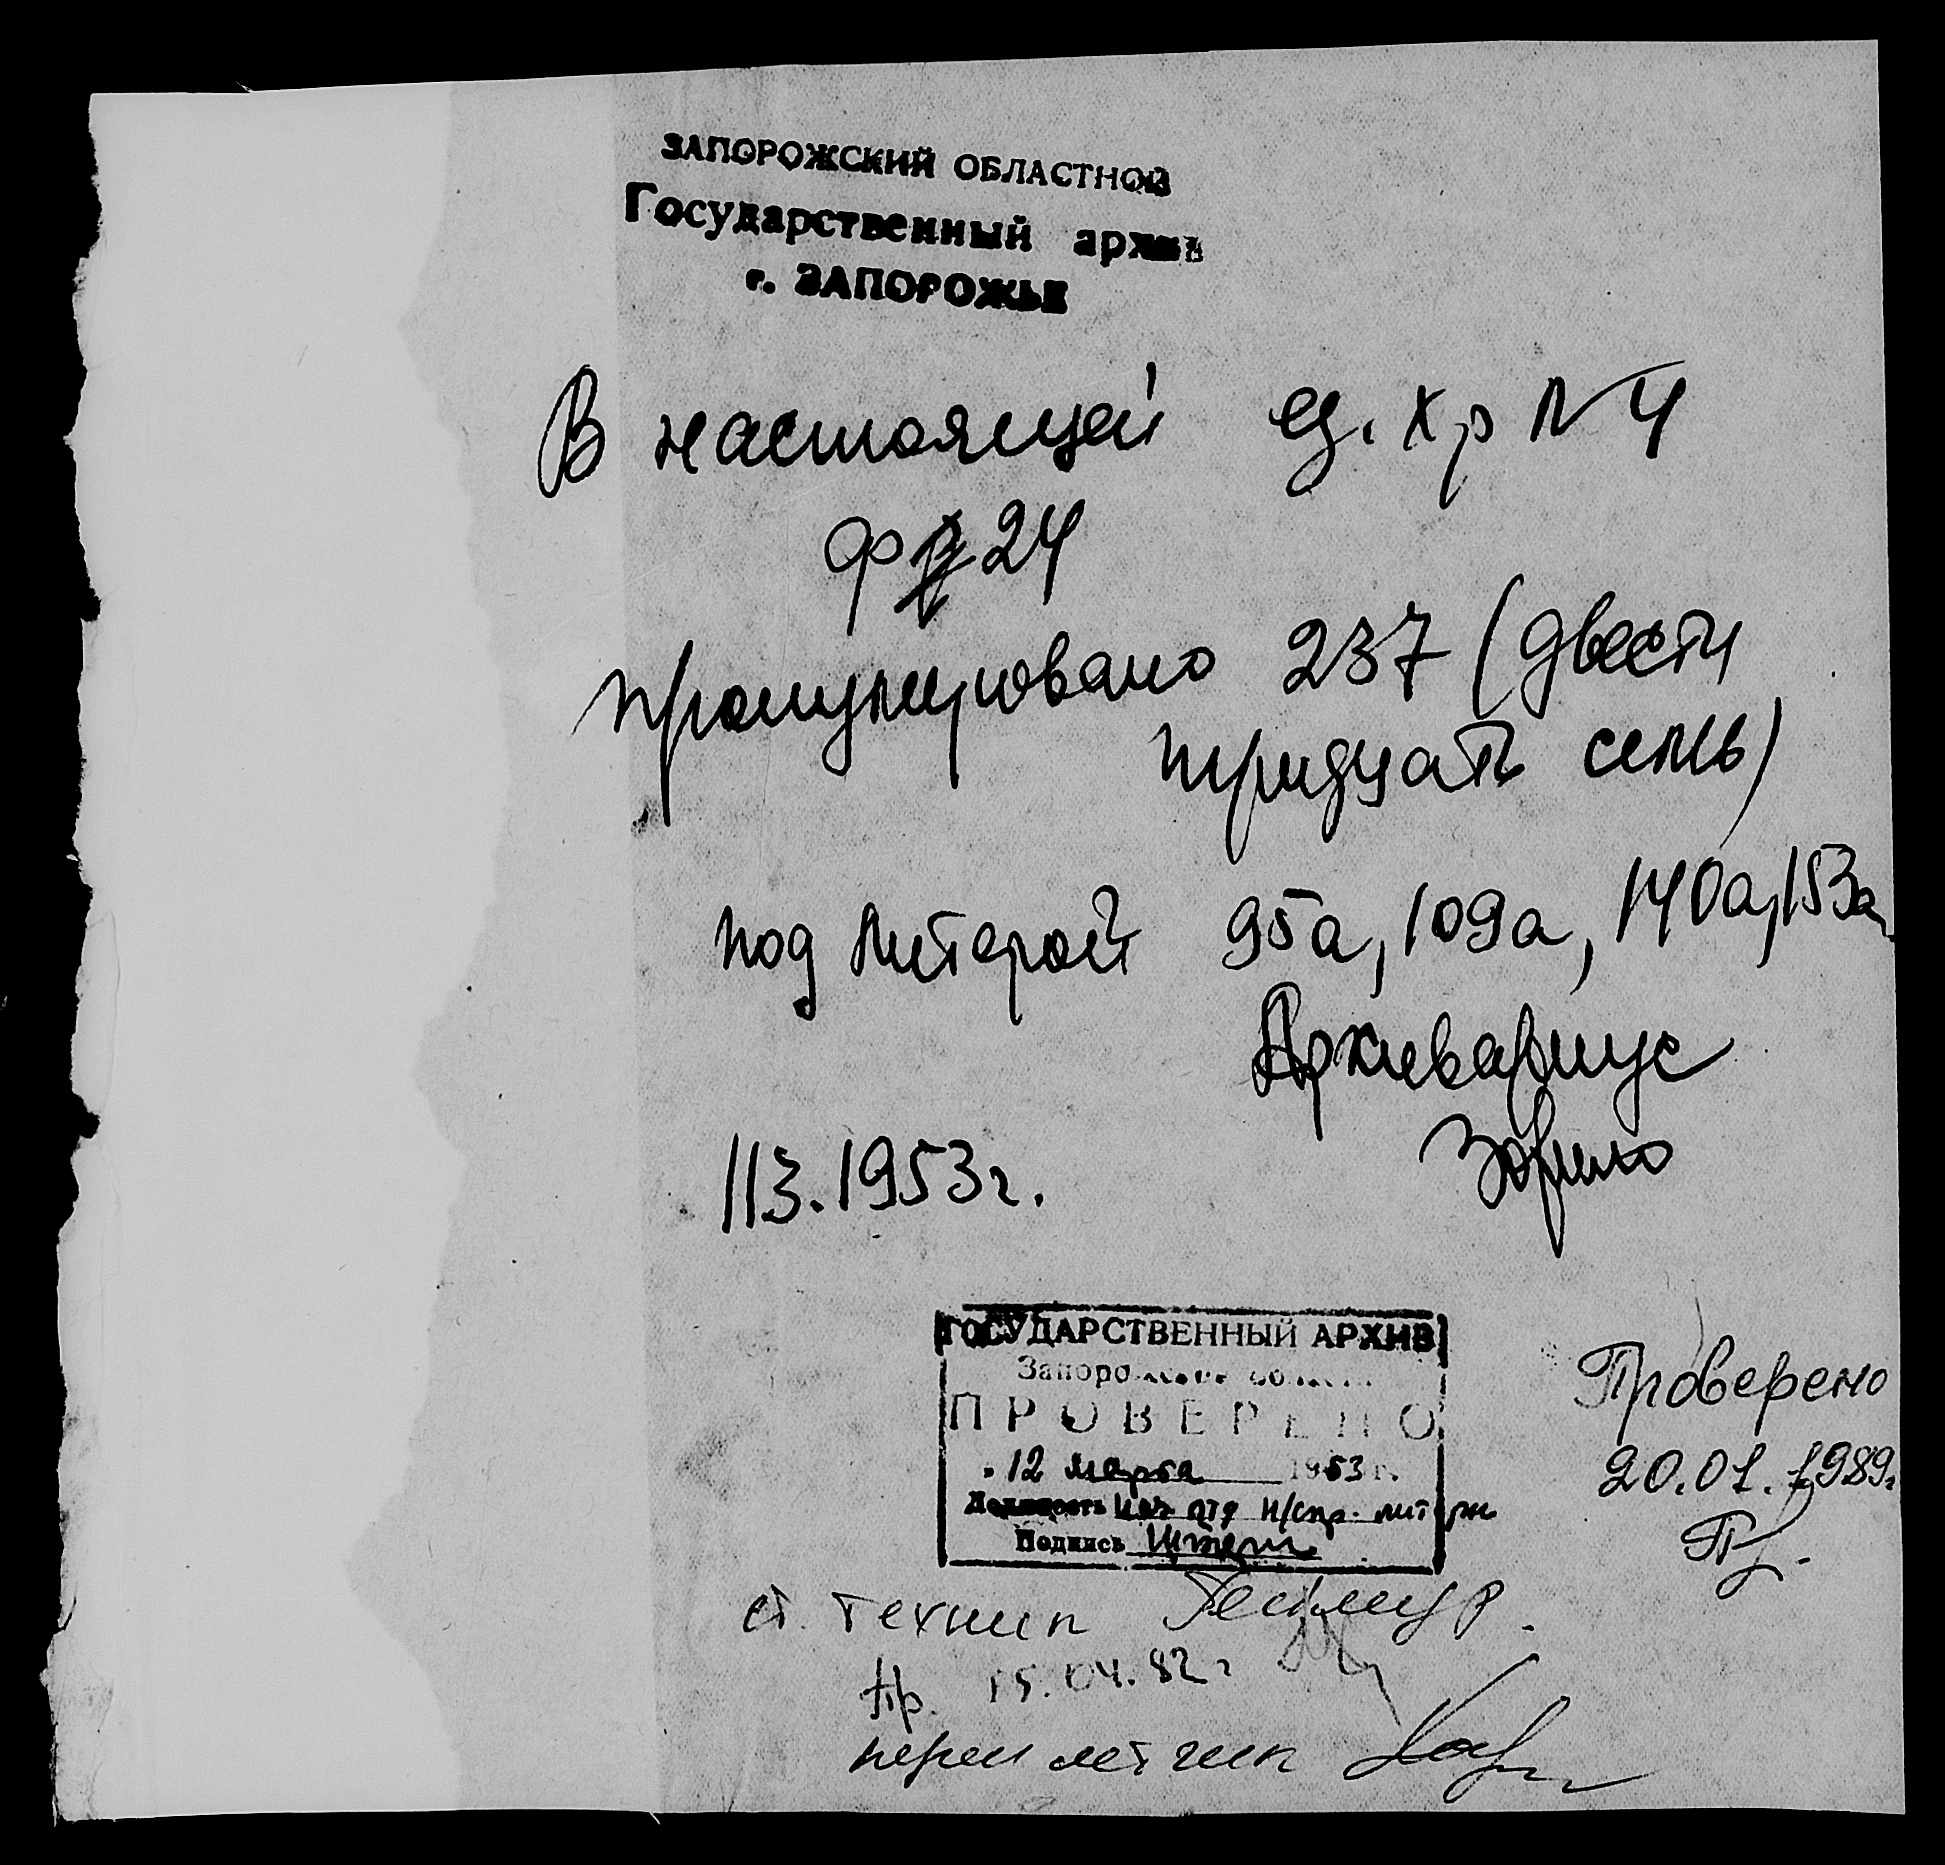 ЗАПОРОЖСКИЙ ОБЛАСТНОЙ
Государственный архив
г. ЗАПОРОЖЬЕ
В настоящей ед. хр N 4
ф 24
пронумеровано 237 (двести
тридцать семь)
под литерой 95а, 109а, 140а, 153а
Архивариус
113.1953г.
ГОСУДАРСТВЕННЫЙ АРХИВ
ПРОВЕРЕНО
12 марта 1953 г.
Должность нач отд н/спр.
Подпись
Проверено
20.01.1989г.
ст. техник
пр. 15.04.82г
переплетчик